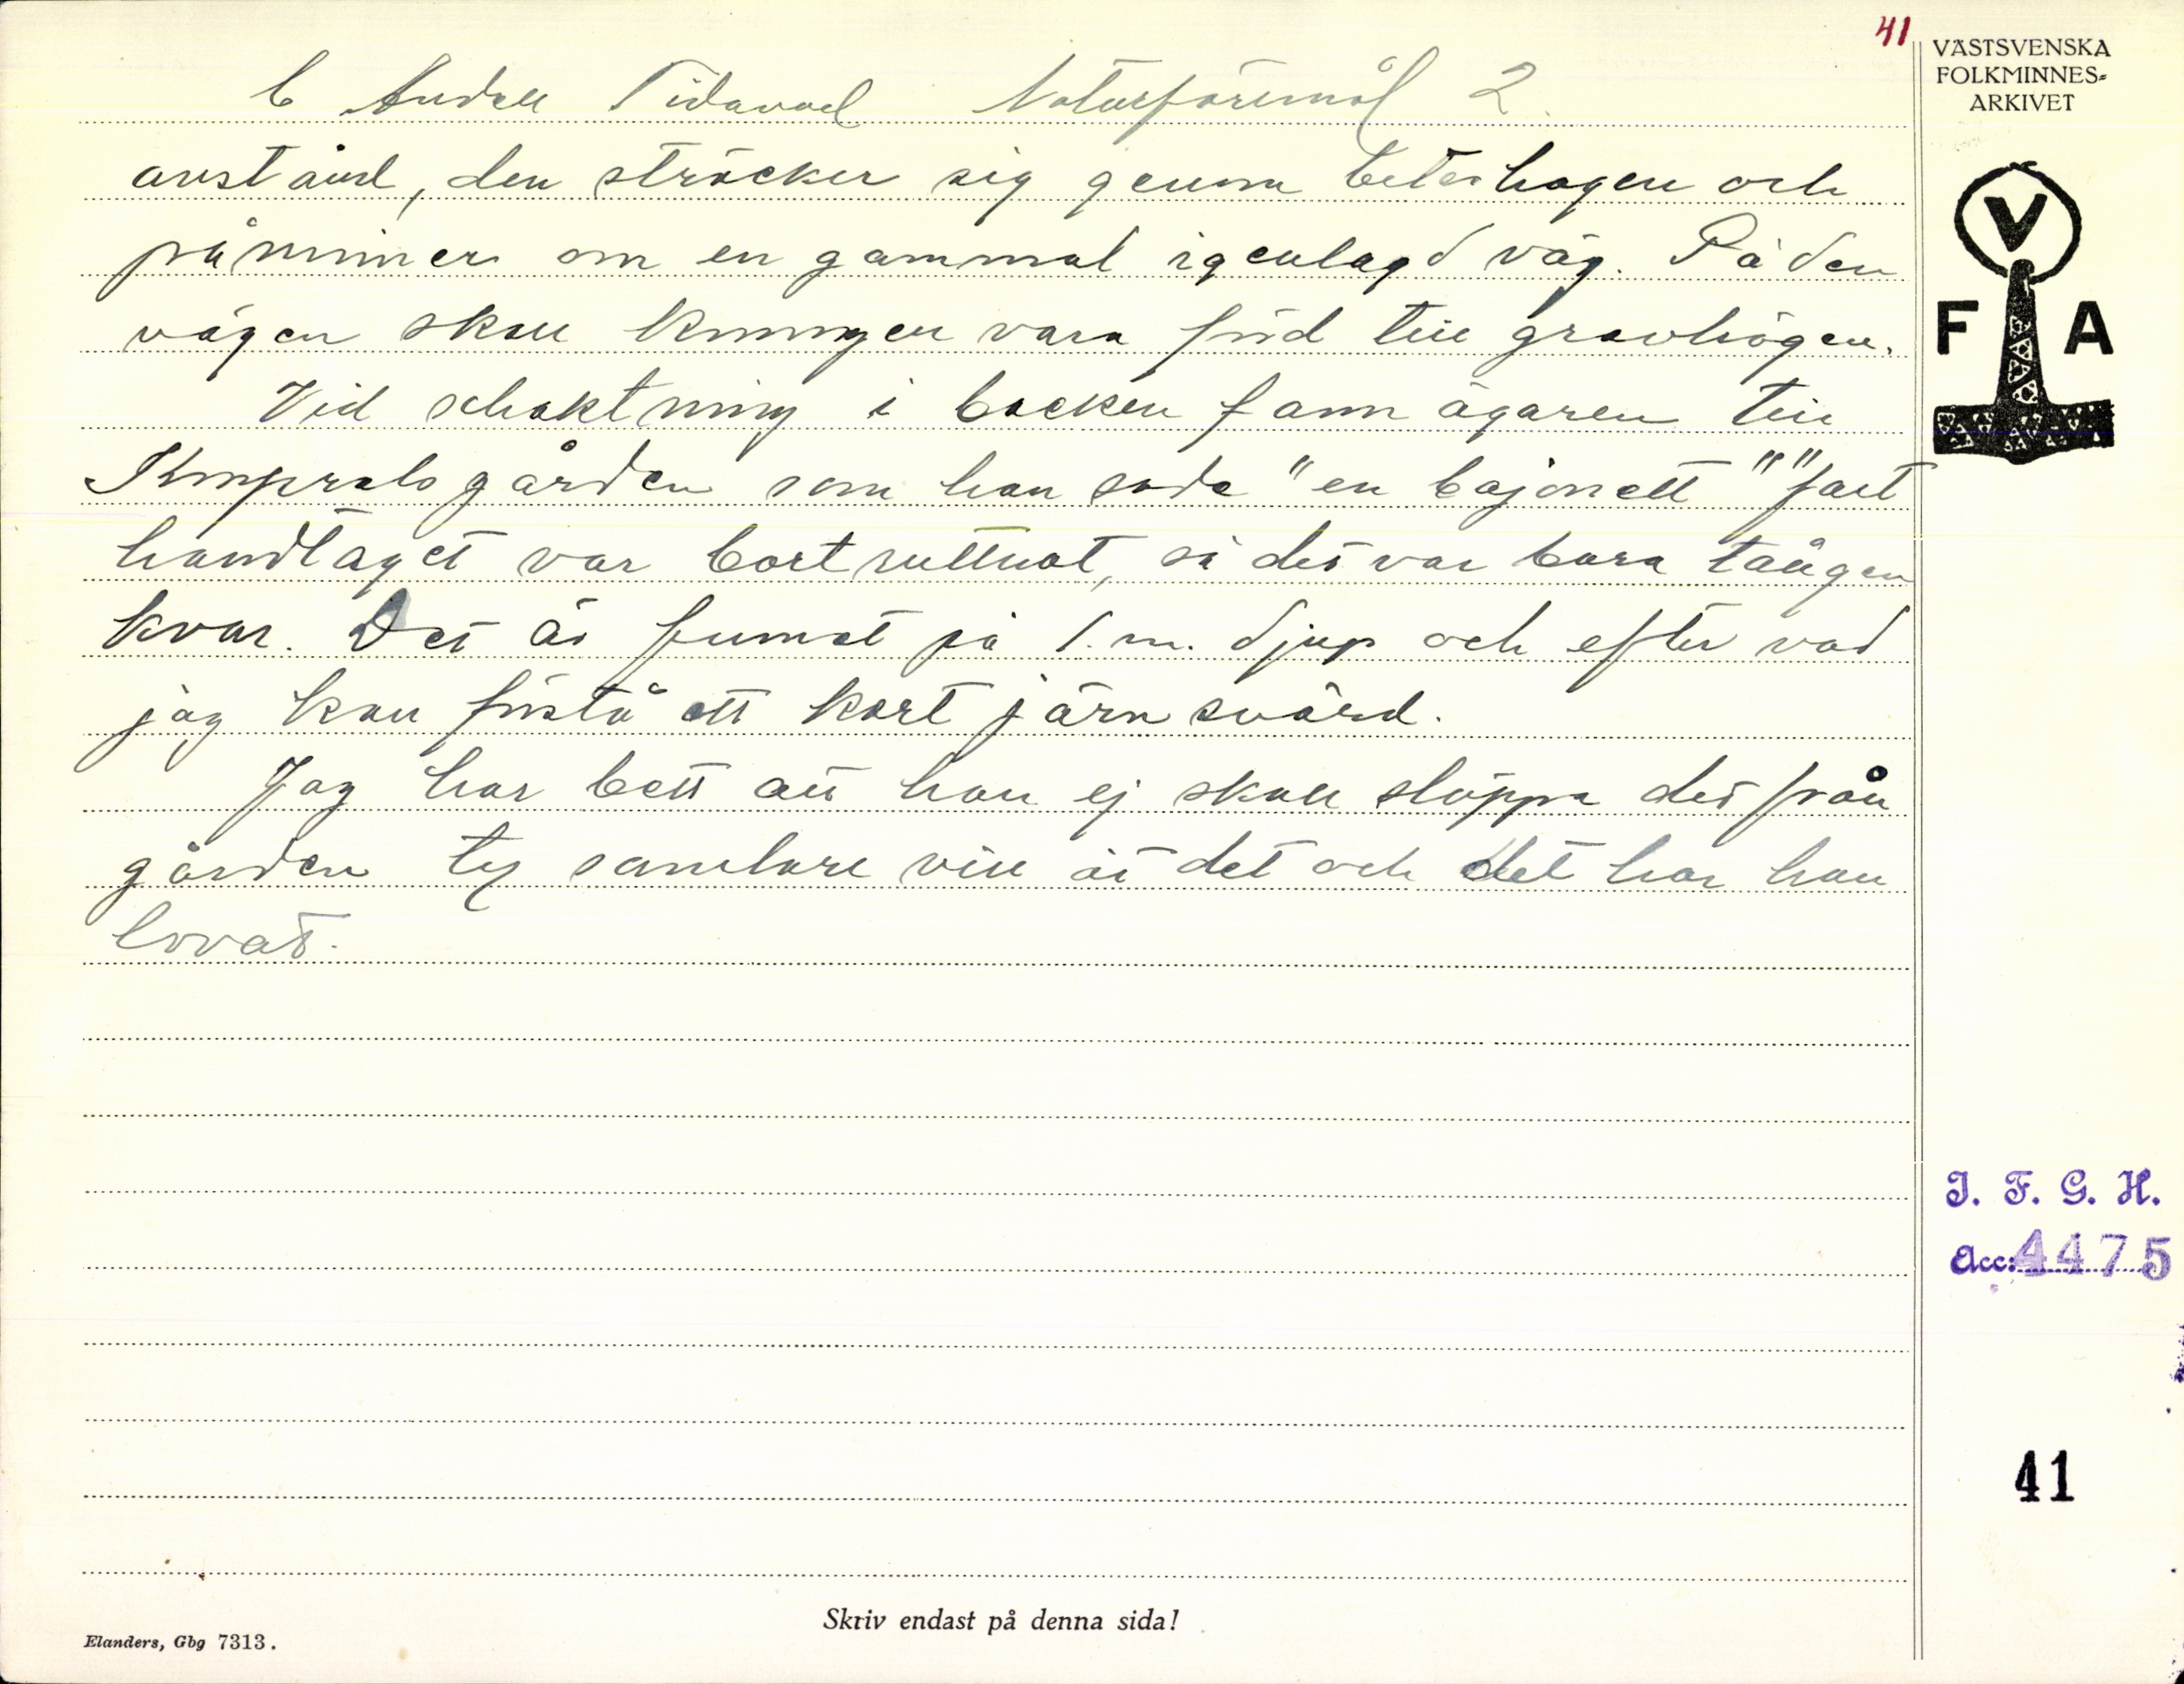 41
VÄSTSVENSKA
FOLKMINNES-
ARKIVET
Naturföremål 2.
avstånd, den sträcker sig genom beteshagen och
påminner om en gammal igenlagd väg. På den
vägen skall kungen vara förd till gravhögen.
Vid schaktning i backen fann ägaren till
Kmpralsgården som han sade "en bajonett" "fast
handtaget var bortruttnat, så det var bara tången
kvar. Det är funnet på 1. m. djup och efter vad
jag kan förstå ett kort järnsvärd.
Jag har bett att han ej skall släppa det från
gården ty samlare vill åt det och det har han
lovat.
V
F A
I. F. G. H.
Acc: 4475
41
Skriv endast på denna sida!
Elanders, Gbg 7313.